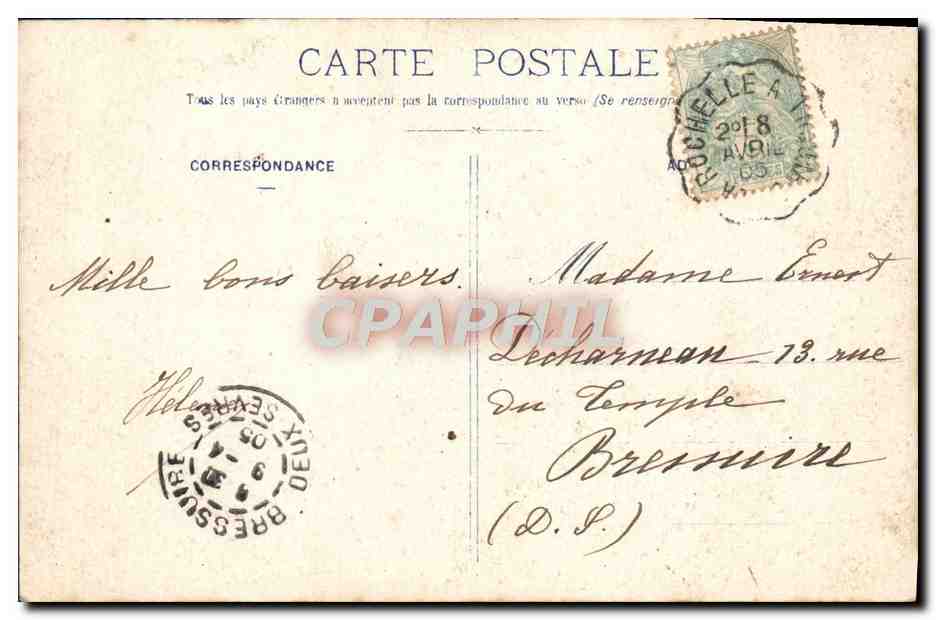 CARTE POSTALE
Tous les pays étrangers n'acceptent pas la correspondance au verso (Se renseign
CORRESPONDANCE
AD
ROCHELLE A
2° 18
AVRIL
05
Mille bons baisers.
Hélène
Madame Ernest
Décharneau 13. rue
du Temple
Bressuire
(D. S.)
BRESSUIRE
DEUX SEVRES
9 - 4
05
CPAPHIL